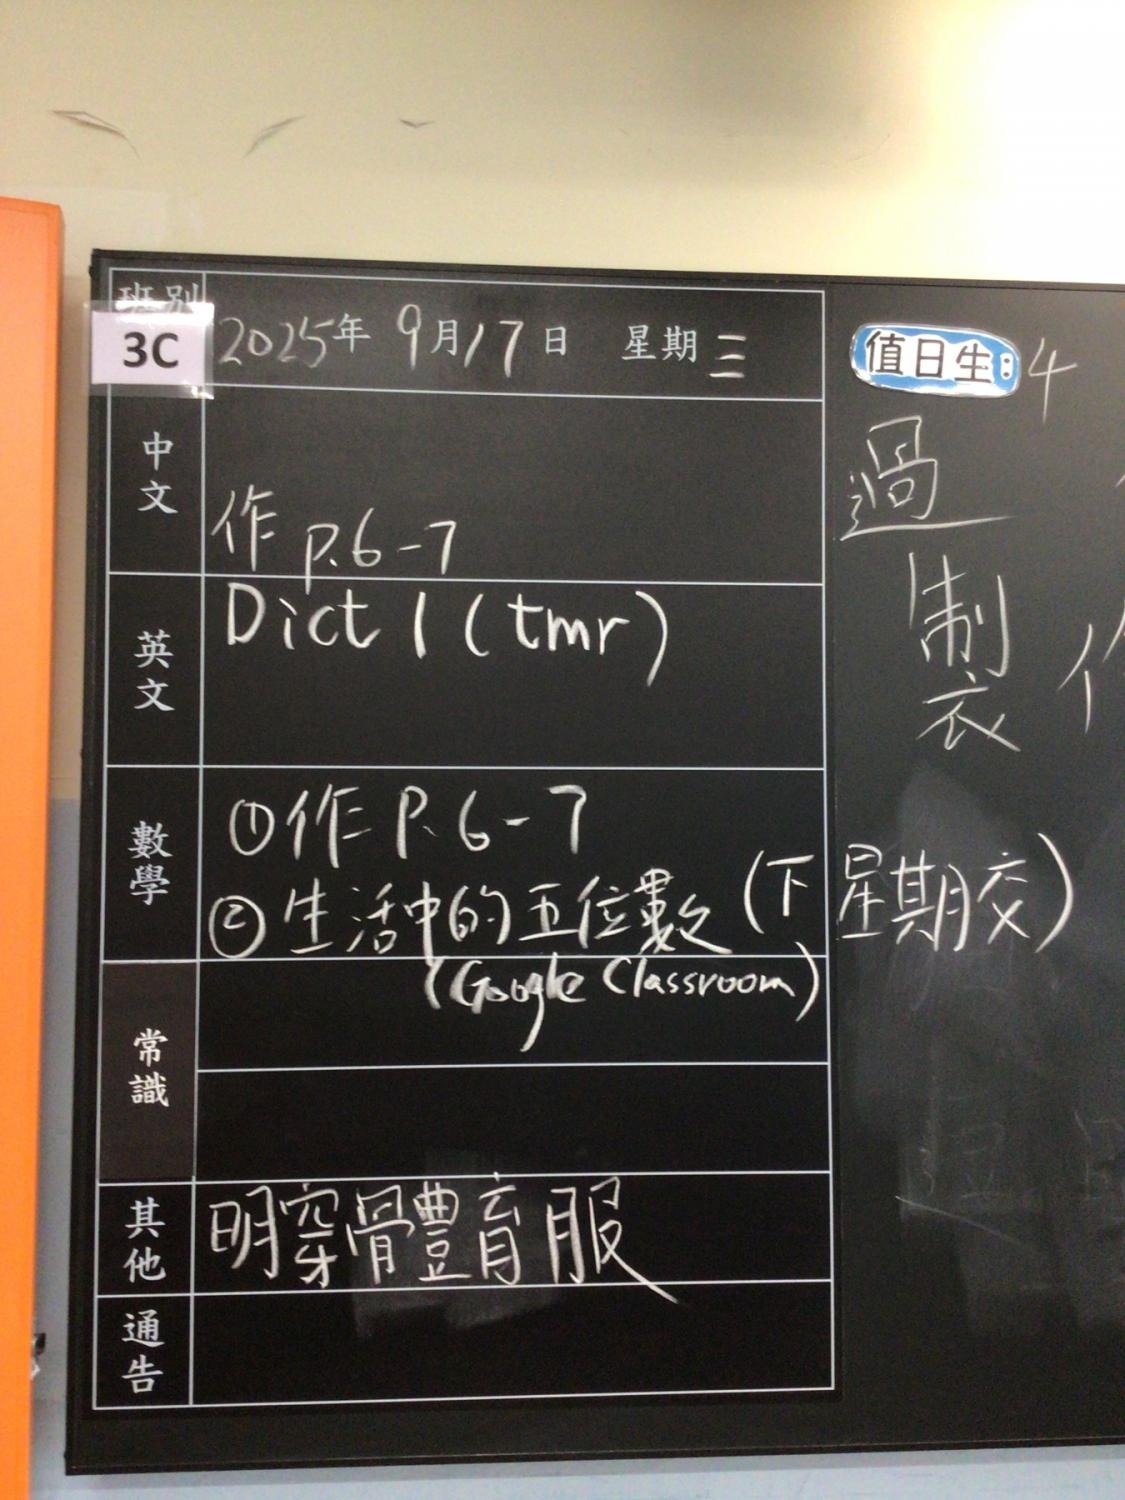 班別
3C
2025年 9月17日 星期三
中文
作 P.6-7
英文
Dict 1 (tmr)
數學
①作 P.6-7
②生活中的五位數 (下星期交)
(Google Classroom)
常識
其他
明穿體育服
通告
值日生:4
過
制
衣